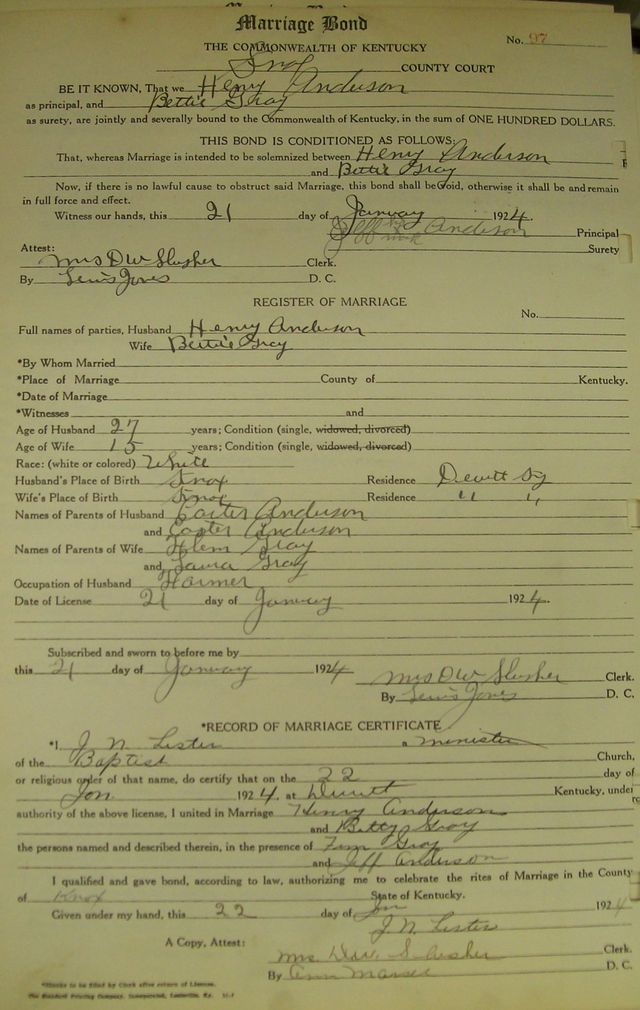 Marriage Bond
No. 97
THE COMMONWEALTH OF KENTUCKY
Knox COUNTY COURT
BE IT KNOWN, That we Henry Anderson
as principal, and Bettie Gray
as surety, are jointly and severally bound to the Commonwealth of Kentucky, in the sum of ONE HUNDRED DOLLARS.
THIS BOND IS CONDITIONED AS FOLLOWS:
That, whereas Marriage is intended to be solemnized between Henry Anderson
and Bettie Gray
Now, if there is no lawful cause to obstruct said Marriage, this bond shall be void, otherwise it shall be and remain
in full force and effect.
Witness our hands, this 21 day of January 1924.
Jeff Anderson Principal
Surety
Attest:
Mrs D W Slusher Clerk.
By Lewis Jones D. C.
REGISTER OF MARRIAGE
No.
Full names of parties, Husband Henry Anderson
Wife Bettie Gray
*By Whom Married
*Place of Marriage County of Kentucky.
*Date of Marriage
*Witnesses and
Age of Husband 27 years; Condition (single, widowed, divorced)
Age of Wife 15 years; Condition (single, widowed, divorced)
Race: (white or colored) White
Husband's Place of Birth Knox Residence Dewitt Ky
Wife's Place of Birth Knox Residence " "
Names of Parents of Husband Carter Anderson
and Easter Anderson
Names of Parents of Wife Flem Gray
and Laura Gray
Occupation of Husband Farmer
Date of License 21 day of January 1924.
Subscribed and sworn to before me by
this 21 day of January 1924
Mrs D W Slusher Clerk.
By Lewis Jones D. C.
*RECORD OF MARRIAGE CERTIFICATE
*I J. N. Lester a minister
of the Baptist Church,
or religious order of that name, do certify that on the 22 day of
Jan 1924. at Dewitt Kentucky, under
authority of the above license, I united in Marriage Henry Anderson
and Betty Gray
the persons named and described therein, in the presence of Gray
and Jeff Anderson
I qualified and gave bond, according to law, authorizing me to celebrate the rites of Marriage in the County
of Knox State of Kentucky.
Given under my hand, this 22 day of Jan 1924
J. N. Lester
A Copy, Attest:
Mrs. D.W. Slusher Clerk.
By Ann D. C.
*Blanks to be filled by Clerk after return of License.
The Standard Printing Company, Incorporated, Louisville, Ky.